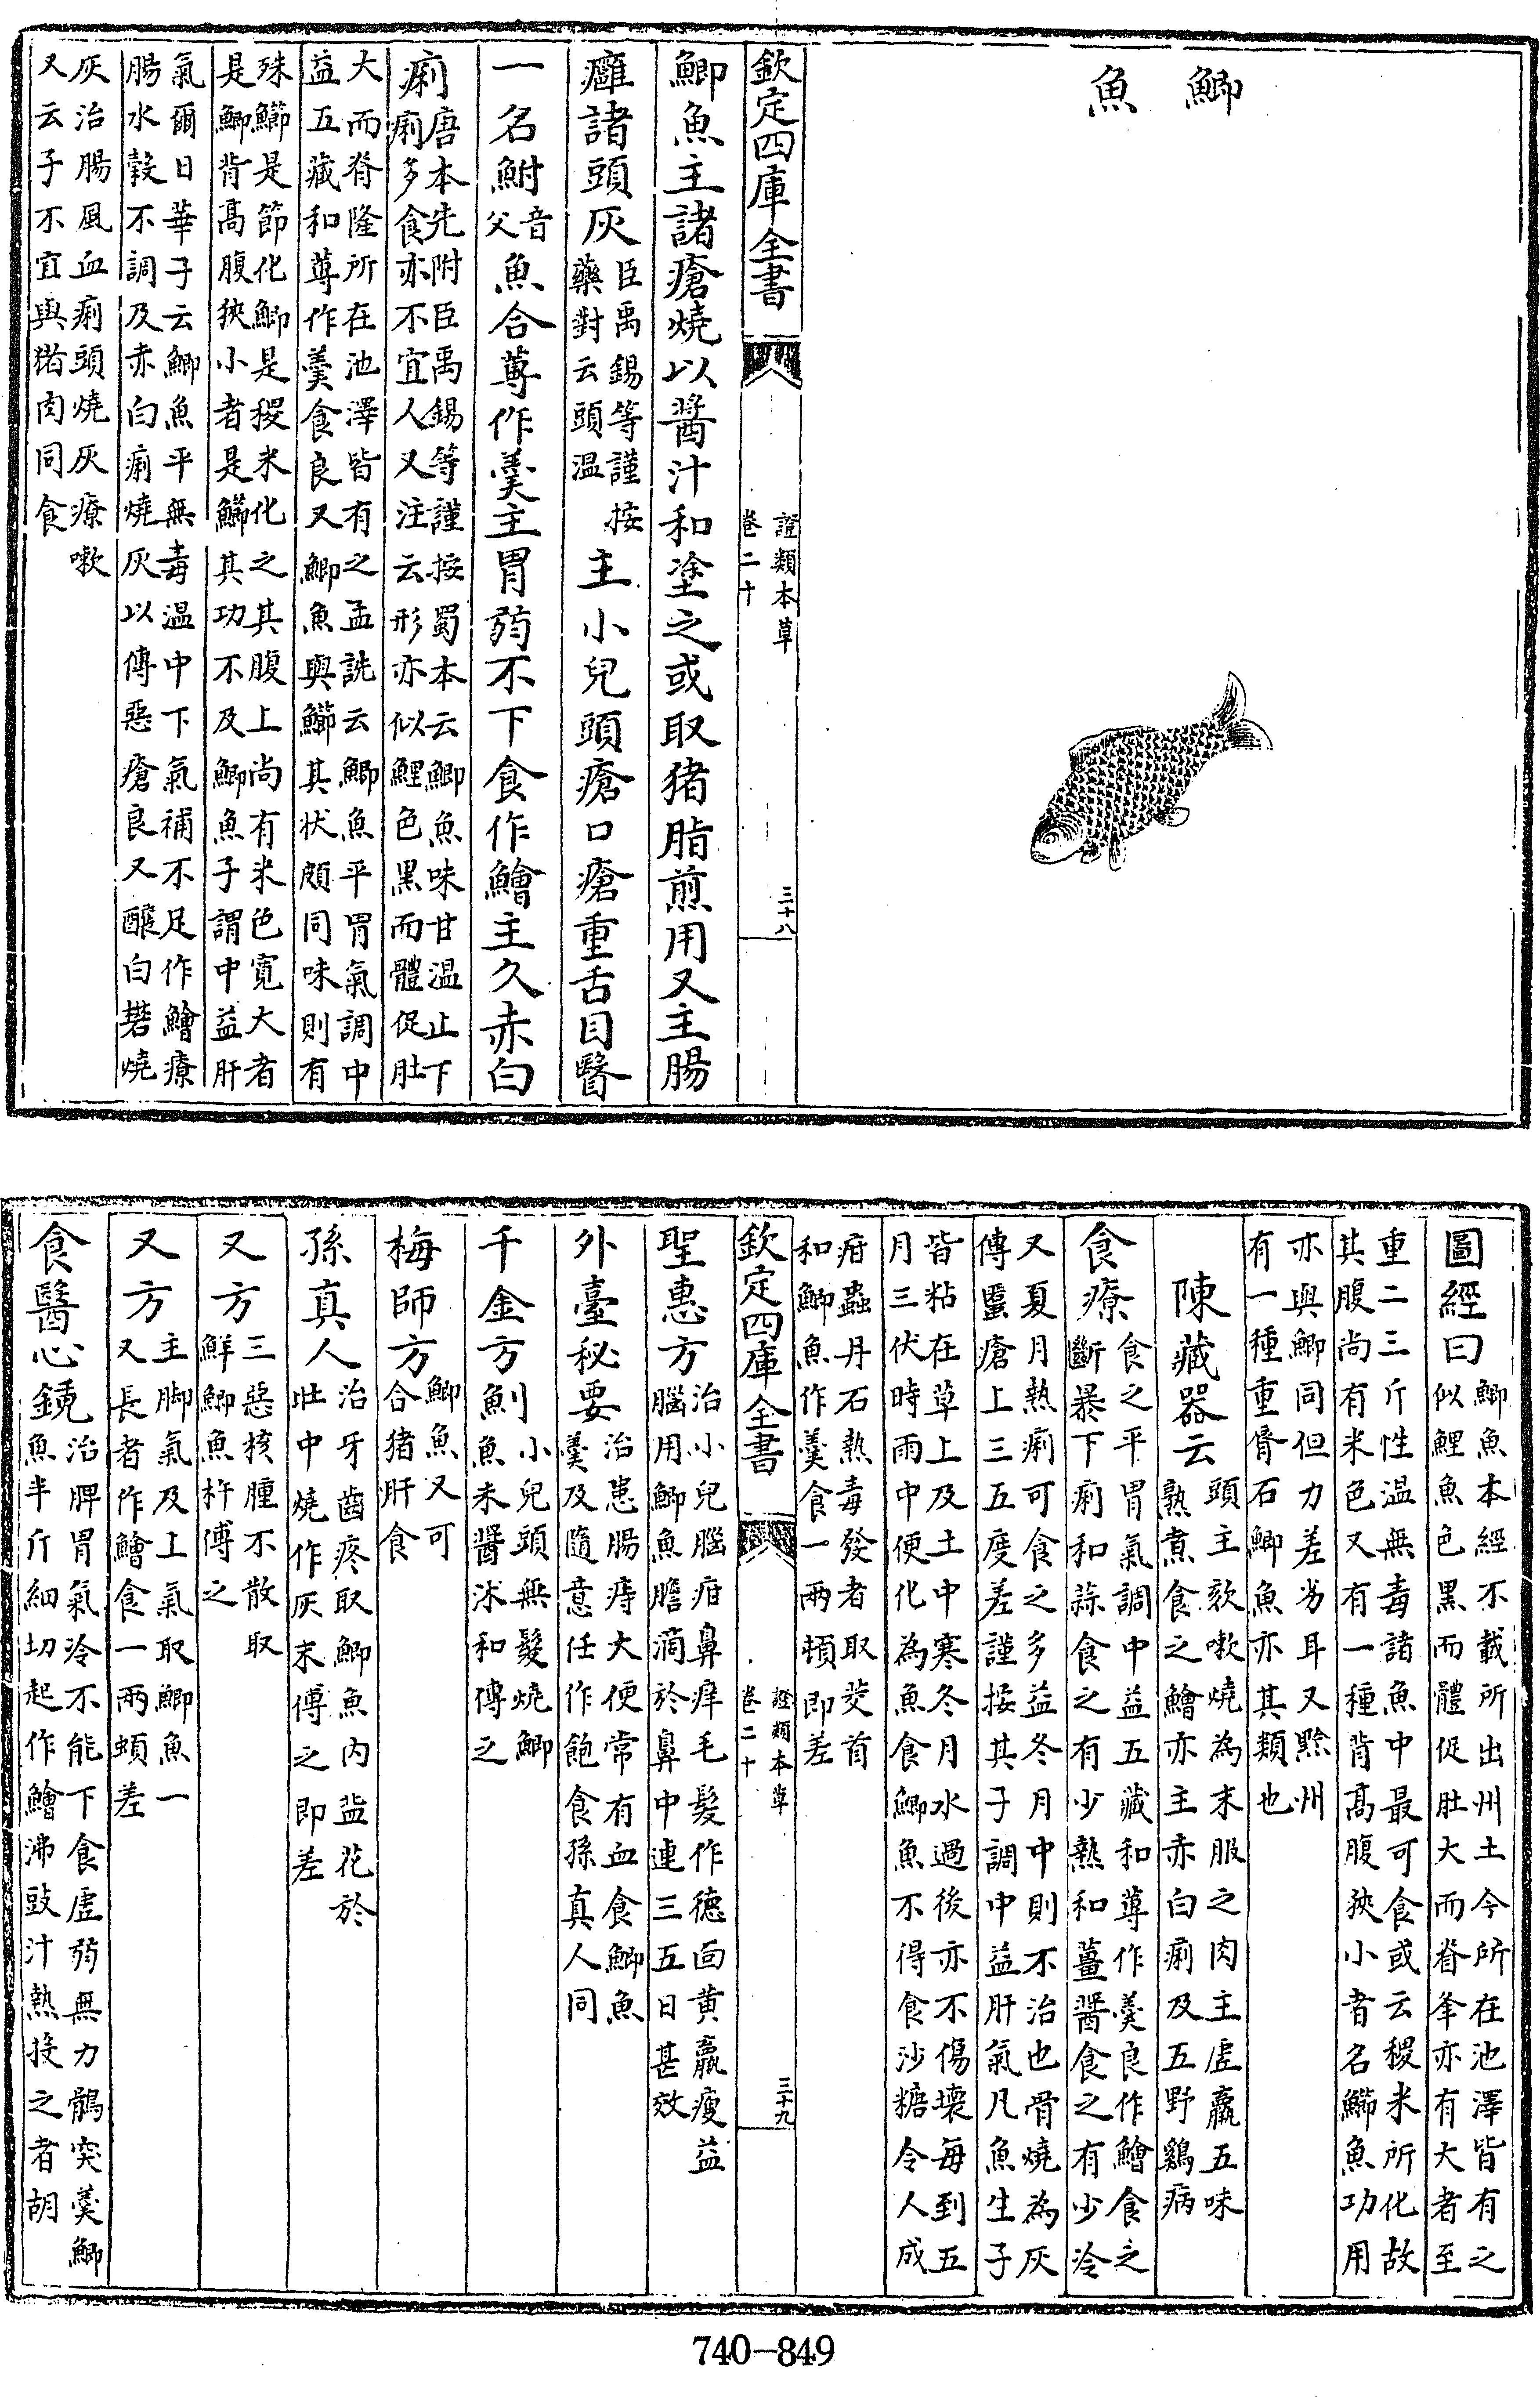 鯽魚
欽定四庫全書
證類本草
卷二十
三十八
鯽魚主諸瘡燒以醬汁和塗之或取猪脂煎用又主腸
癰諸頭灰臣禹錫等謹按藥對云頭溫主小兒頭瘡口瘡重舌目瞖
一名鮒音父魚合蓴作羮主胃弱不下食作鱠主久赤白
痢唐本先附臣禹錫等謹按蜀本云鯽魚味甘溫止下
痢多食亦不宜人又注云形亦似鯉色黑而體促肚
大而脊隆所在池澤皆有之孟詵云鯽魚平胃氣調中
益五藏和蓴作羮食良又鯽魚與鯽其状頗同味則有
殊鯽是節化鯽是稷米化之其腹上尚有米色寛大者
是鯽背高腹狹小者是鯽其功不及鯽魚子謂中益肝
氣爾日華子云鯽魚平無毒溫中下氣補不足作鱠療
腸水穀不調及赤白痢燒灰以傅惡瘡良又釀白礬燒
灰治腸風血痢頭燒灰療嗽
又云子不宜與猪肉同食
圖經曰鯽魚本經不載所出州土今所在池澤皆有之
似鯉魚色黑而體促肚大而脊隆亦有大者至
重二三斤性溫無毒諸魚中最可食或云稷米所化故
其腹尚有米色又有一種背高腹狹小者名鯽魚功用
亦與鯽同但力差劣耳又黔州
有一種重脣石鯽魚亦其類也
陳藏器云頭主欬嗽燒為末服之肉主虛羸五味
熟煮食之鱠亦主赤白痢及五野鷄病
食療食之平胃氣調中益五藏和蓴作羮良作鱠食之
斷暴下痢和蒜食之有少熱和薑醬食之有少冷
又夏月熱痢可食之多益冬月中則不治也骨燒為灰
傅䘌瘡上三五度差謹按其子調中益肝氣凡魚生子
皆粘在草上及土中寒冬月水過後亦不傷壊每到五
月三伏時雨中便化為魚食鯽魚不得食沙糖令人成
疳蟲丹石熱毒發者取茭首
和鯽魚作羮食一兩頓即差
欽定四庫全書
證類本草
卷二十
三十九
聖惠方治小兒腦疳鼻痒毛髮作德面黄羸瘦益
腦用鯽魚膽滴於鼻中連三五日甚效
外臺秘要治患腸痔大便常有血食鯽魚
羮及隨意任作飽食孫真人同
千金方小兒頭無髮燒鯽
魚末醬汁和傅之
梅師方鯽魚又可
合猪肝食
孫真人治牙齒疼取鯽魚内盐花於
肚中燒作灰末傅之即差
又方三惡核腫不散取
鮮鯽魚杵傅之
又方主脚氣及上氣取鯽魚一
又長者作鱠食一兩頓差
食醫心鏡治脾胃氣冷不能下食虛弱無力鶻突羮鯽
魚半斤細切起作鱠沸豉汁熱投之者胡
740-849